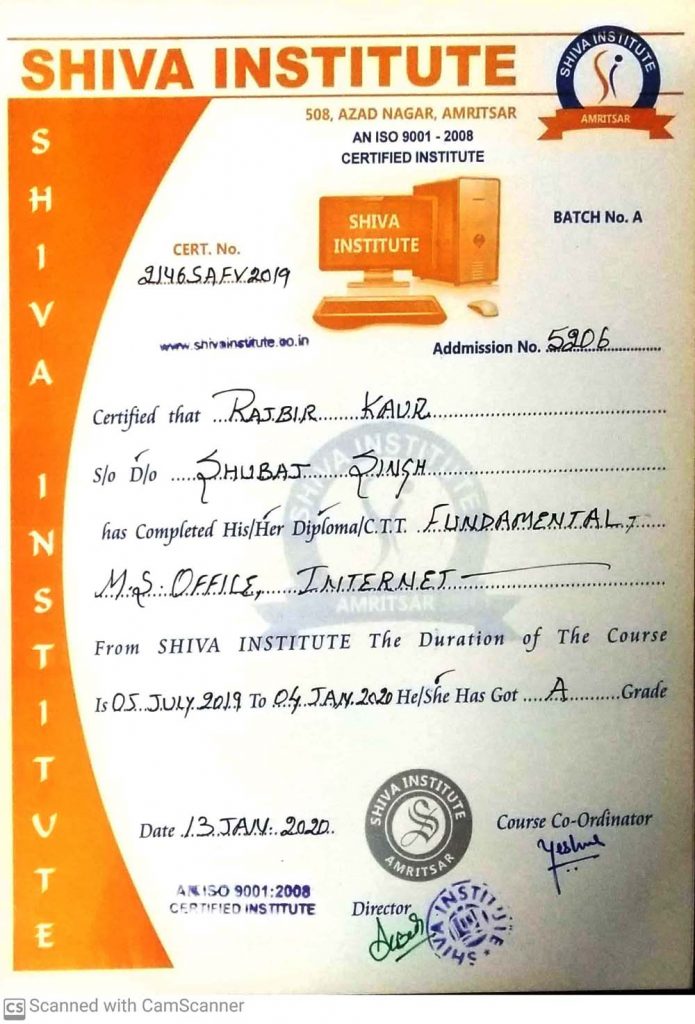 SHIVA INSTITUTE
SHIVA INSTITUTE
AMRITSAR
508, AZAD NAGAR, AMRITSAR
AN ISO 9001 - 2008
CERTIFIED INSTITUTE
SHIVA INSTITUTE
SHIVA
INSTITUTE
BATCH No. A
CERT. No.
2146SAFV2019
www.shivainstitute.co.in
Addmission No. 5206
Certified that RAJBIR KAUR
S/o D/o SHUBAJ SINGH
has Completed His/Her Diploma/C.T.T. FUNDAMENTAL,
M.S. OFFICE, INTERNET
SHIVA INSTITUTE
AMRITSAR
From SHIVA INSTITUTE The Duration of The Course
Is 05 JULY 2019 To 04 JAN. 2020 He/She Has Got A Grade
SHIVA INSTITUTE
AMRITSAR
Date 13 JAN. 2020.
Course Co-Ordinator
AN ISO 9001:2008
CERTIFIED INSTITUTE
Director
SHIVA INSTITUTE
CS Scanned with CamScanner